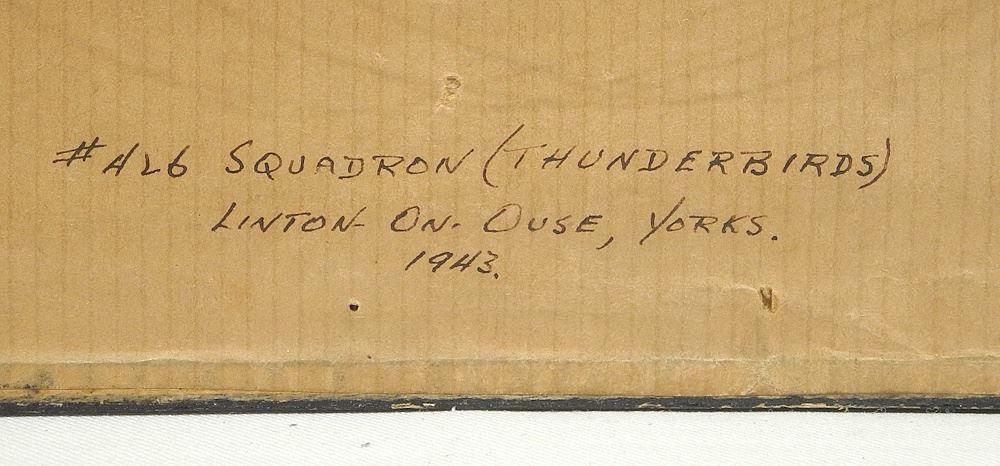 #426 SQUADRON (THUNDERBIRDS)
LINTON-ON-OUSE, YORKS.
1943.